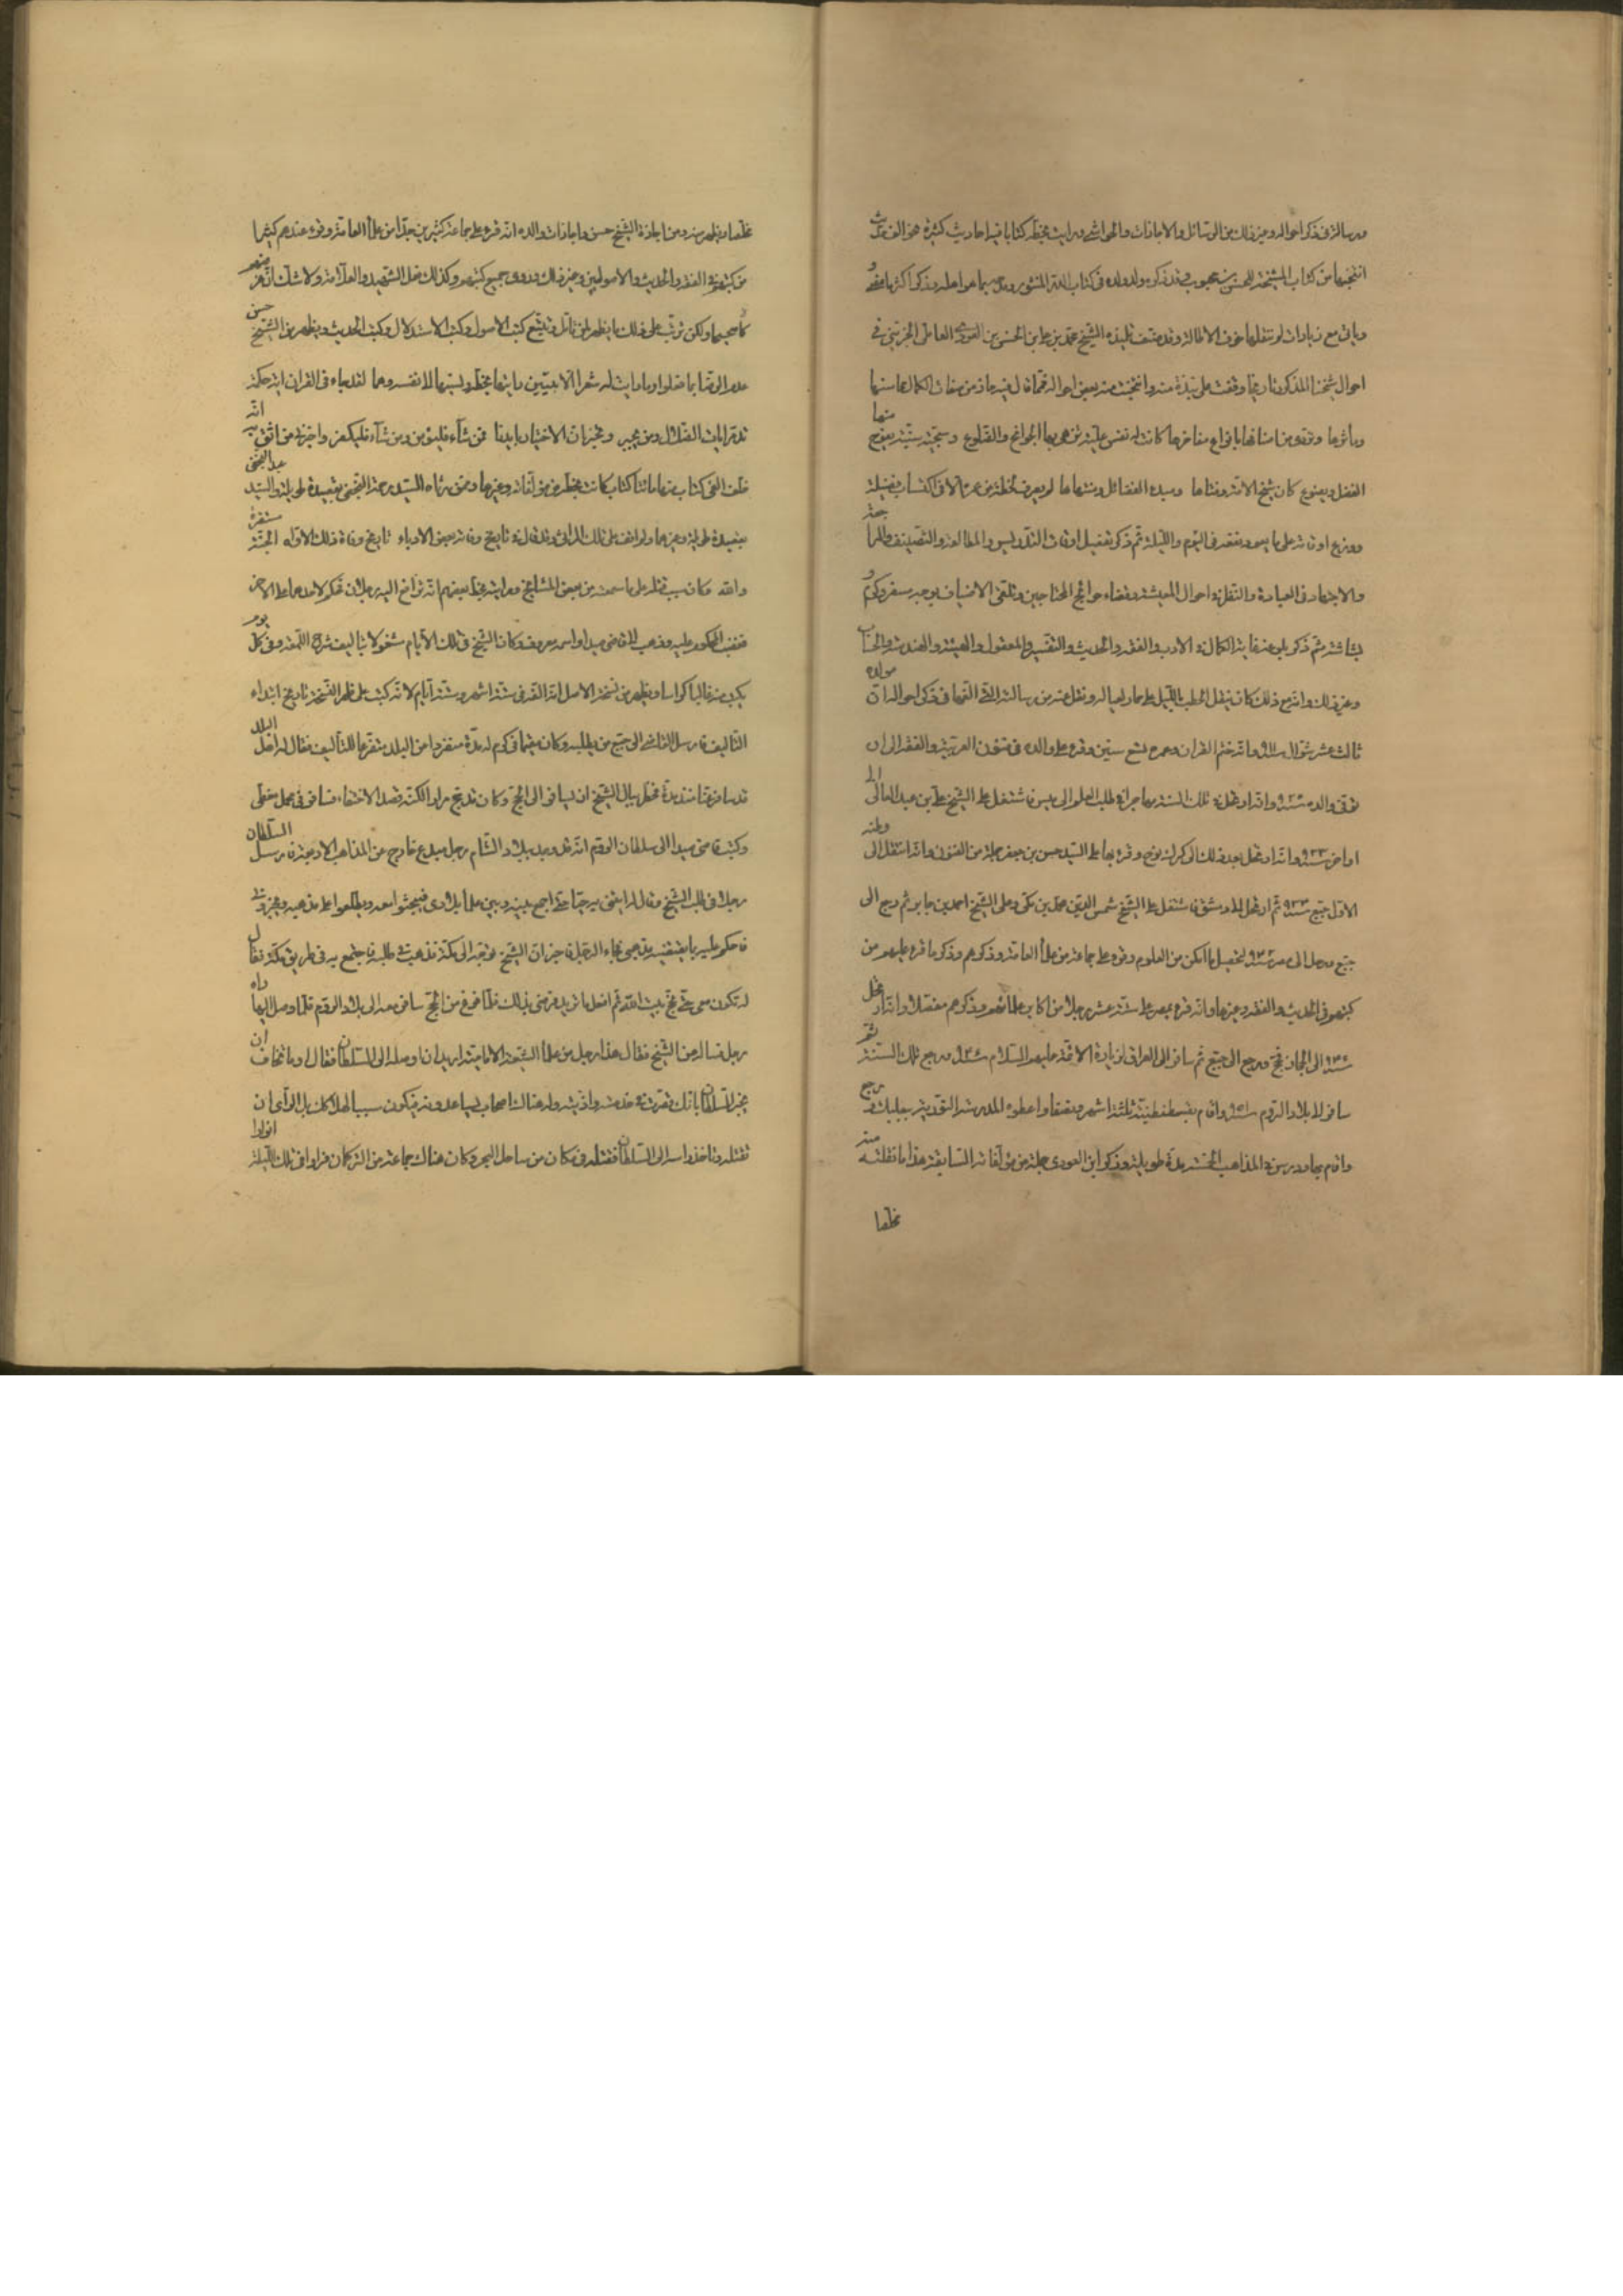 ورسالة في ذكر احواله وغير ذلك من الرسائل والاجازات والحواشي ورايت بخطه كتابا فيه احاديث كثيرة هو الف حديث
انتخبها من كتاب المشيخة للحسن بن محبوب وقد ذكره ولد ولده في كتاب الدر المنثور ومدحه بما هو اهله وذكر اكثر مؤلفاته
وياتي مع زيادات لم ننقلها خوف الاطالة وقد صنف تلميذه الشيخ محمد بن علي بن الحسن بن العودي العاملي الجزيني في
احوال شيخنا المذكور تاريخا وقفت على نبذة منه وانتخبت منه بعض احواله فمما قال فيه حاز من صفات الكمال محاسنها
ومآثرها وتردى من اصنافها بانواع مفاخرها كانت له نفس علية تزهى بها الجوانح والضلوع وسجية سنية يفوح منها
الفضل ويضوع كان شيخ الامة وفتاها ومبدء الفضائل ومنتهاها لم يصرف لحظة من عمره الا في اكتساب فضيلة
ووزع اوقاته على ما يعود نفعه في اليوم والليلة ثم ذكر تفصيل اوقات التدريس والمطالعة والتصنيف والمراجعة
والاجتهاد في العبادة والنظر في احوال المعيشة وقضاء حوائج المحتاجين وتلقي الاضياف بوجه مسفر وكرم و
بشاشة ثم ذكر بلوغه غاية الكمال في الادب والفقه والحديث والتفسير والمعقول والهيئة والهندسة والحساب
وغير ذلك وانه مع ذلك كان ينقل الحطب بالليل على حمار لعياله ونقل عنه من رسالته التي الفها في ذكر احواله ان مولده
ثالث عشر شوال سنة ٩١١ وانه ختم القران وعمره تسع سنين وقرء على والده في فنون العربية والفقه الى ان
توفي والده سنة ٩٢٥ وانه ارتحل في تلك السنة مهاجرا في طلب العلم الى ميس فاشتغل على الشيخ علي بن عبد العالي الى
اواخر سنة ٩٣٣ وانه ارتحل بعد ذلك الى كرك نوح وقرء بها على السيد حسن بن جعفر جملة من الفنون وانه انتقل الى وطنه
الاول جبع سنة ٩٣٤ ثم ارتحل الى دمشق فاشتغل على الشيخ شمس الدين محمد بن مكي وعلى الشيخ احمد بن جابر ثم رجع الى
جبع ورحل الى مصر سنة ٩٤٢ لتحصيل ما امكن من العلوم وقرء على جماعة من علماء العامة وذكرهم وذكر ما قرء عليهم من
كتبهم في الحديث والفقه وغيرها وانه قرء بمصر على ستة عشر رجلا من اكابر علمائهم وذكرهم مفصلا وانه ارتحل
الى الحجاز فحج ورجع الى جبع ثم سافر الى العراق لزيارة الائمة عليهم السلام ورجع تلك السنة ثم
سافر الى بلاد الروم واقام بقسطنطينية ثلثة اشهر ونصفا واعطوه المدرسة النورية ببعلبك ورجع
واقام بها ودرس في المذاهب الخمسة مدة طويلة وذكر ابن العودي جملة من مؤلفاته السابقة هذا ما نقلته منه
ملخصا
ملخصا ويظهر منه ومن اجازة الشيخ حسن واجازات والده انه قرء على جماعة كثيرين جدا من علماء العامة وقرء عندهم كثيرا
من كتبهم في الفقه والحديث والاصولين وغير ذلك وروى جميع كتبهم وكذلك فعل الشهيد والعلامة ولا شك ان غرضهم
كان صحيحا ولكن ترتب على ذلك ما يظهر لمن تامل وتتبع كتب الاصول وكتب الاستدلال وكتب الحديث ويظهر من الشيخ حسن
عدم الرضا بما فعلوا ورايت له شعرا الا بيتين رايتهما بخطه ونسبهما الى نفسه وهما لقد جاء في القران اية حكمة
تدمر ايات الضلال ومن يجبر وتخبر ان الاختيار بايدينا فمن شاء فليؤمن ومن شاء فليكفر واخبرني من اثق به انه
خلف الفي كتاب منها مائتا كتاب كانت بخطه من مؤلفاته وغيرها وممن رثاه السيد رحمة النجفي بقصيدة طويلة والسيد عبد
بقصيدة طويلة وغيرهما ولم اقف على تلك المراثي وقد قال في تاريخ وفاته بعض الادباء تاريخ وفاة ذلك الاواه الجنة مستقره
والله وكان سبب قتله على ما سمعته من بعض المشايخ ورايته بخط بعضهم انه ترافع اليه رجلان فحكم لاحدهما على الاخر
فغضب المحكوم عليه وذهب الى قاضي صيدا واسمه معروف وكان الشيخ في تلك الايام مشغولا بتاليف شرح اللمعة وفي كل يوم
يكتب منه غالبا كراسا ويظهر من نسخة الاصل انه الفه في ستة اشهر وستة ايام لانه كتب على ظهر النسخة تاريخ ابتداء
التاليف فارسل القاضي الى جبع من يطلبه وكان مقيما في كرم له مدة منفردا من البلد متفرغا للتاليف فقال له اهل البلد
قد سافر عنا منذ مدة فخطر ببال الشيخ ان يسافر الى الحج وكان قد حج مرارا لكنه قصد الاختفاء فسافر في محمل مغطى
وكتب قاضي صيدا الى سلطان الروم انه قد وجد ببلاد الشام رجل مبدع خارج عن المذاهب الاربعة فارسل السلطان
رجلا في طلب الشيخ وقال له ايتني به حيا حتى اجمع بينه وبين علماء بلادي فيبحثوا معه ويطلعوا على مذهبه ويخبروني
فاحكم عليه بما يقتضيه مذهبي فجاء الرجل فاخبر ان الشيخ توجه الى مكة فذهب في طلبه فاجتمع به في طريق مكة فقال
له تكون معي حتى نحج بيت الله ثم افعل ما تريد فرضي بذلك فلما فرغ من الحج سافر معه الى بلاد الروم فلما وصل اليها راه
رجل فساله عن الشيخ فقال هذا رجل من علماء الشيعة الامامية اريد ان اوصله الى السلطان فقال او ما تخاف ان
يخبر السلطان بانك قصرت في خدمته واذيته وله هناك اصحاب يساعدونه فيكون سببا لهلاكك بل الراي ان
تقتله وتاخذ راسه الى السلطان فقتله في مكان من ساحل البحر وكان هناك جماعة من التركمان فراوا في تلك الليلة انوارا